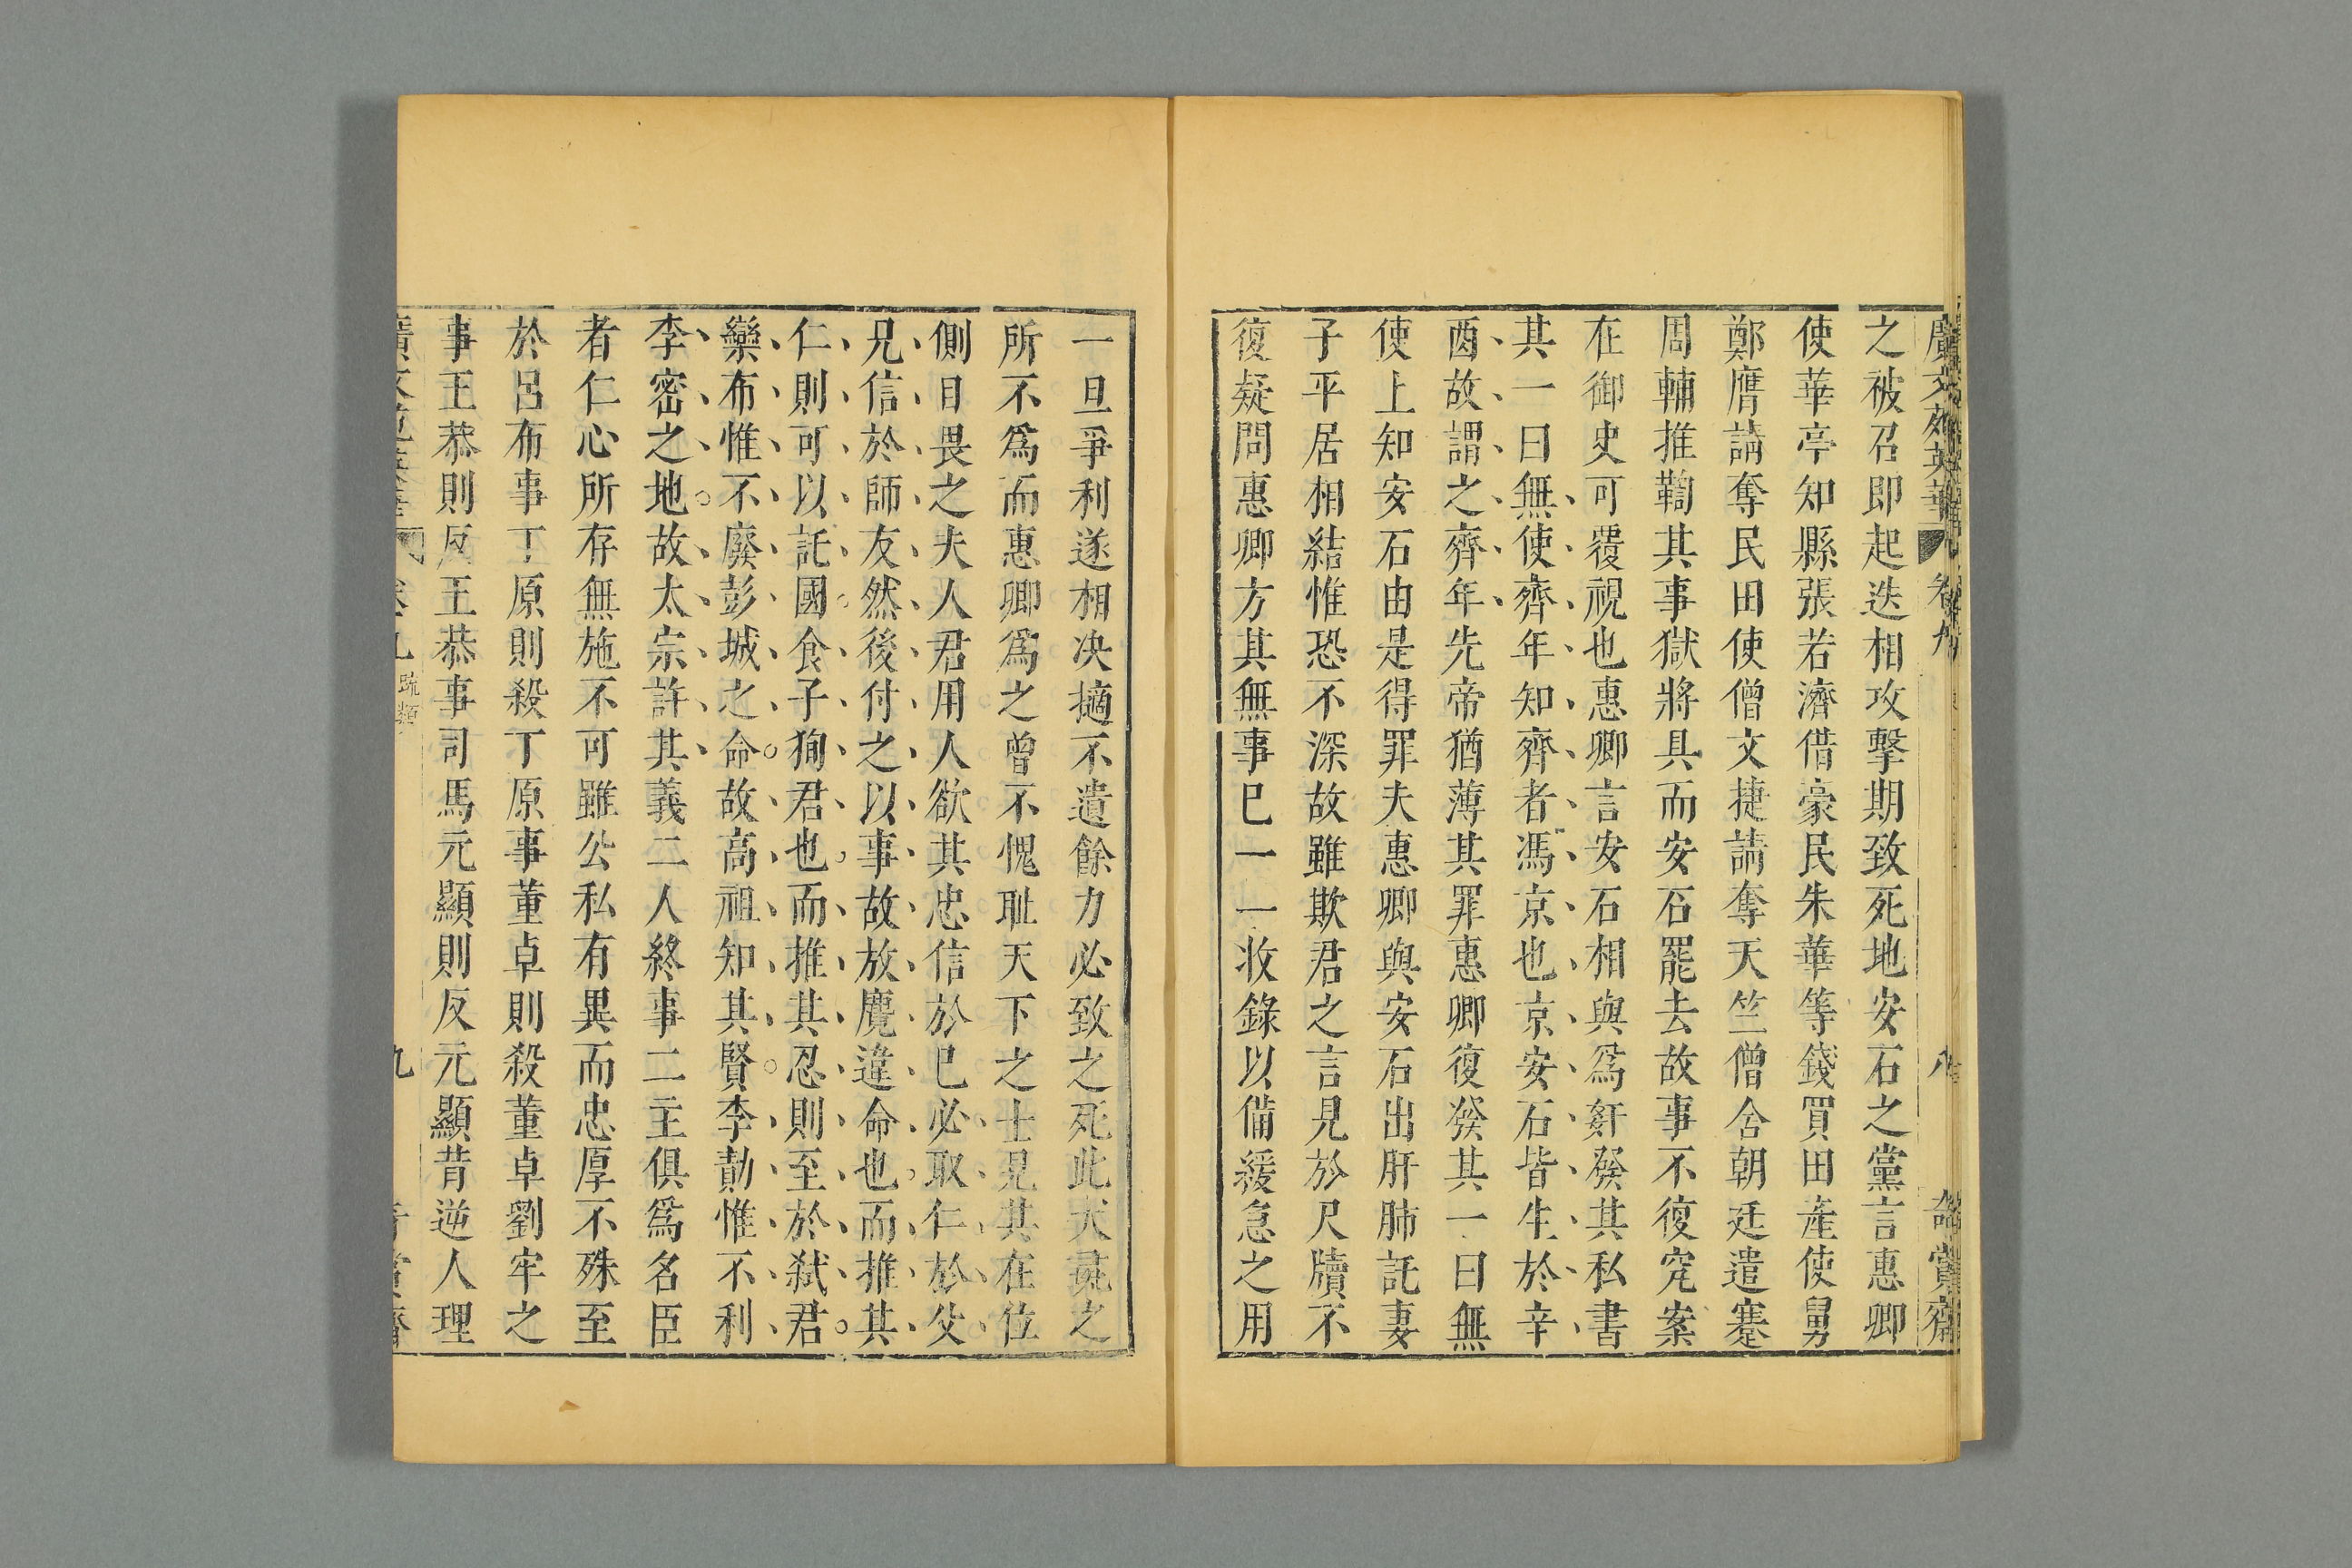 廣文苑英華 卷九 八 奇賞齋
之被召即起迭相攻擊期致死地安石之黨言惠卿
使華亭知縣張若濟借豪民朱華等錢買田產使舅
鄭膺請奪民田使僧文捷請奪天竺僧舍朝廷遣蹇
周輔推鞫其事獄將具而安石罷去故事不復究案
在御史可覆視也惠卿言安石相與爲奸發其私書
其一曰無使齊年知齊者馮京也京安石皆生於辛
酉故謂之齊年先帝猶薄其罪惠卿復發其一曰無
使上知安石由是得罪夫惠卿與安石出肝肺託妻
子平居相結惟恐不深故雖欺君之言見於尺牘不
復疑問惠卿方其無事已一一收錄以備緩急之用
一旦爭利遂相决擿不遺餘力必致之死此犬彘之
所不爲而惠卿爲之曾不愧耻天下之士見其在位
側目畏之夫人君用人欲其忠信於巳必取仁於父
兄信於師友然後付之以事故放麑違命也而推其
仁則可以託國食子狥君也而推其忍則至於弑君
欒布惟不廢彭城之命故高祖知其賢李勣惟不利
李密之地故太宗許其義二人終事二主俱爲名臣
者仁心所存無施不可雖公私有異而忠厚不殊至
於呂布事丁原則殺丁原事董卓則殺董卓劉牢之
事王恭則反王恭事司馬元顯則反元顯昔逆人理
廣文苑英華 卷九 疏類 九 奇賞齋